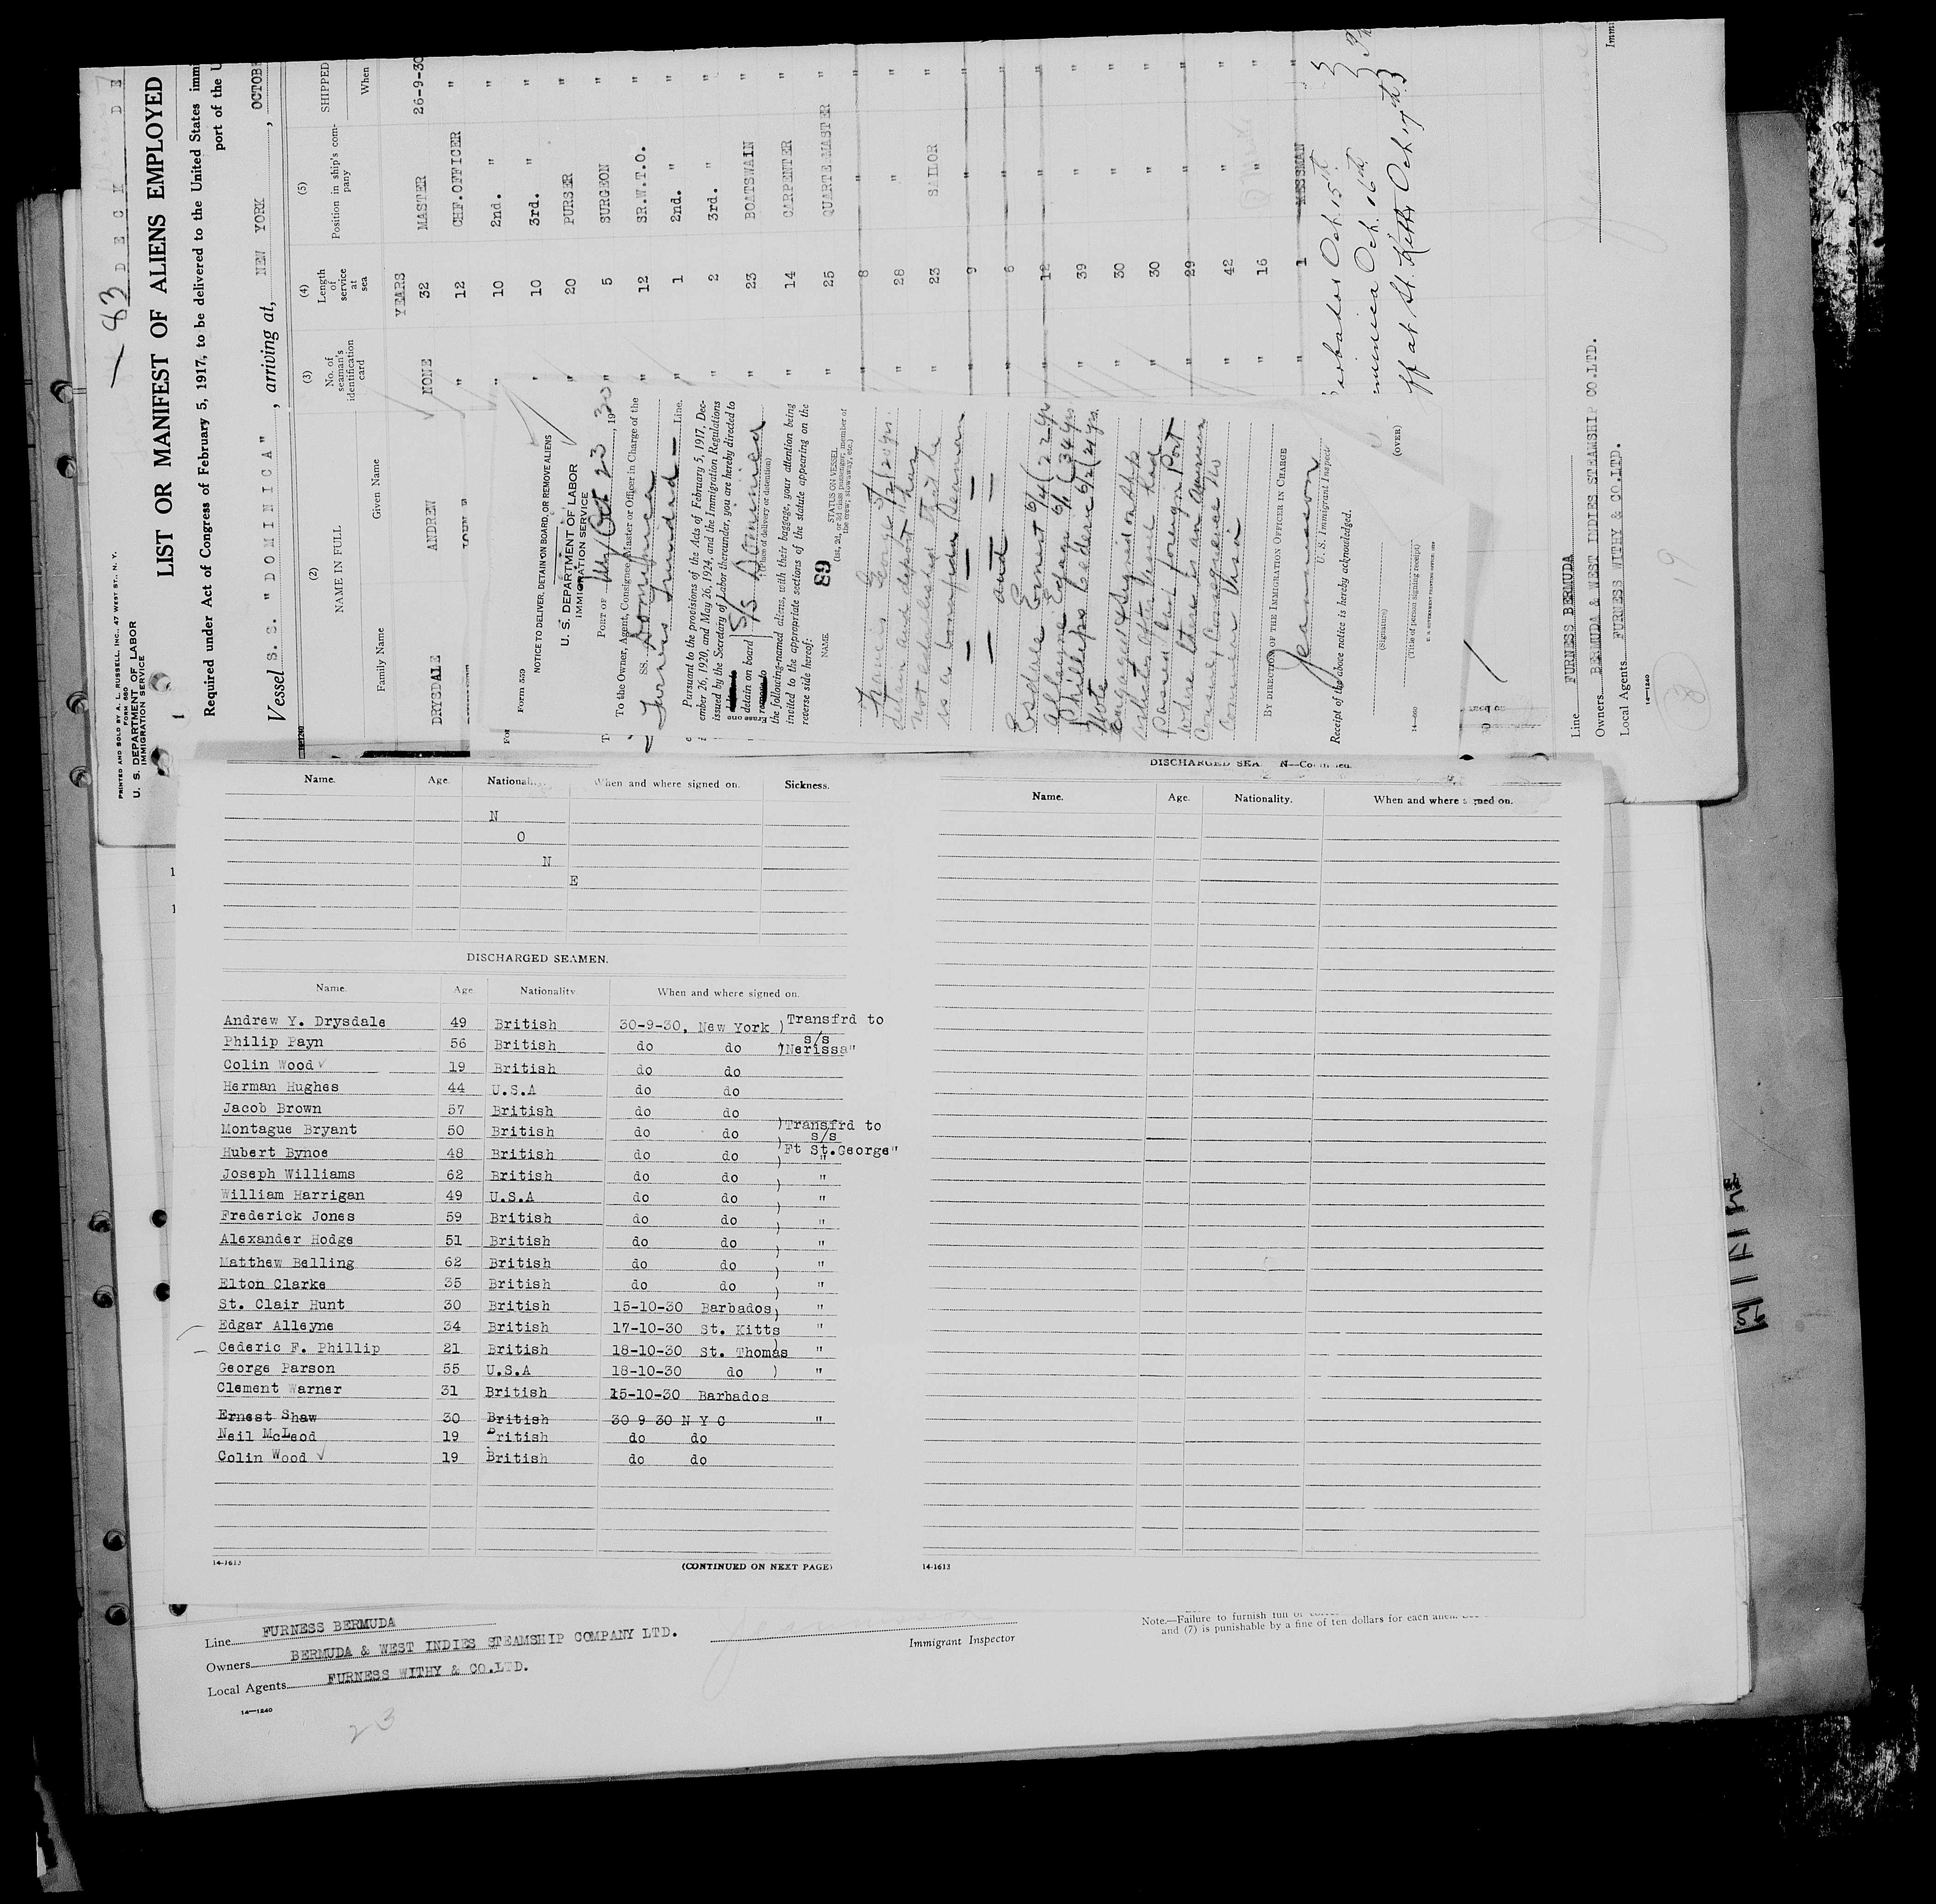 — 83
D E C K   D E
PRINTED AND SOLD BY A. L. RUSSELL, INC., 47 WEST ST., N. Y.
FORM 680
U. S. DEPARTMENT OF LABOR
IMMIGRATION SERVICE
LIST OR MANIFEST OF ALIENS EMPLOYED
Required under Act of Congress of February 5, 1917, to be delivered to the United States immi
port of the U
Vessel S. S. "DOMINICA", arriving at, NEW YORK, OCTOBE
(2) (3) (4) (5)
NAME IN FULL No. of seaman's identification card Length of service at sea Position in ship's company SHIPPED
Family Name Given Name When
YEARS
DRYSDALE ANDREW NONE 32 MASTER 26-9-30
" 12 CHF.OFFICER "
" 10 2nd. " "
" 10 3rd. " "
" 20 PURSER "
" 5 SURGEON "
" 12 SR.W.T.O. "
" 1 2nd. " "
" 2 3rd. " "
" 23 BOATSWAIN "
" 14 CARPENTER "
" 25 QUARTE MASTER "
" 8 " "
" 28 " "
" 23 SAILOR "
" 9 " "
" 6 " "
" 12 " "
" 39 " "
" 30 " "
" 30 " "
" 29 " "
" 42 " "
" 16 " "
" 1 MESSMAN "
rbados Oct. 15th
minica Oct. 16th
ff at St. Kitts Oct 17th
Line FURNESS BERMUDA
Owners BERMUDA & WEST INDIES STEAMSHIP CO.LTD.
Local Agents FURNESS WITHY & CO.LTD.
14—1240
(OVER)
Immi
19
Form 559
NOTICE TO DELIVER, DETAIN ON BOARD, OR REMOVE ALIENS
U. S. DEPARTMENT OF LABOR
IMMIGRATION SERVICE
PORT OF NY Oct 23, 1930
To the Owner, Agent, Consignee, Master or Officer in Charge of the
SS. Dominica
Furness Line.
Pursuant to the provisions of the Acts of February 5, 1917, Dec-
ember 26, 1920, and May 26, 1924, and the Immigration Regulations
issued by the Secretary of Labor thereunder, you are hereby directed to
detain on board S/S Dominica
(Place of delivery or detention)
Erase one
the following-named aliens, with their baggage, your attention being
invited to the appropriate sections of the statute appearing on the
reverse side hereof:
NAME. 89 STATUS ON VESSEL
(1st, 2d, or 3d class passenger; member of
the crew; stowaway, etc.)
George
detain and deport
not established that he
is a bonafide Seaman
— and —
Esdaile Ernest 6/4 (22 yrs
Alleyne Edgar 6/1 (34 yrs
Phillips Cederic 6/2 (21 yrs.
Note
signed on ship
passed last foreign Port
where there is an American
BY DIRECTION OF THE IMMIGRATION OFFICER IN CHARGE
U. S. Immigrant Inspec
Receipt of the above notice is hereby acknowledged.
(Signature)
(Title of person signing receipt)
14—660
Name. Age. When and where signed on. Sickness.
N
O
N
E
DISCHARGED SEAMEN.
Name. Age Nationality When and where signed on.
Andrew Y. Drysdale 49 British 30-9-30, New York ) Transfrd to
s/s
Philip Payn 56 British do do )Nerissa"
Colin Wood ✓ 19 British do do
Herman Hughes 44 U.S.A do do
Jacob Brown 57 British do do
Montague Bryant 50 British do do )Transfrd to
s/s
Hubert Bynoe 48 British do do ) Ft St.George"
Joseph Williams 62 British do do ) "
William Harrigan 49 U.S.A do do ) "
Frederick Jones 59 British do do ) "
Alexander Hodge 51 British do do ) "
Matthew Belling 62 British do do ) "
Elton Clarke 35 British do do ) "
St. Clair Hunt 30 British 15-10-30 Barbados) "
Edgar Alleyne 34 British 17-10-30 St. Kitts "
Cederic F. Phillip 21 British 18-10-30 St. Thomas "
George Parson 55 U.S.A 18-10-30 do ) "
Clement Warner 31 British 15-10-30 Barbados
Ernest Shaw 30 British 30 9 30 N Y C "
Neil McLeod 19 British do do
Colin Wood ✓ 19 British do do
14-1613 (CONTINUED ON NEXT PAGE)
Name. Age. Nationality. When and where
14-1613
Line FURNESS BERMUDA
Owners BERMUDA & WEST INDIES STEAMSHIP COMPANY LTD.
Local Agents FURNESS WITHY & CO.LTD.
14—1240
23
Immigrant Inspector
Note.—Failure to furnish full or
and (7) is punishable by a fine of ten dollars for each alien.